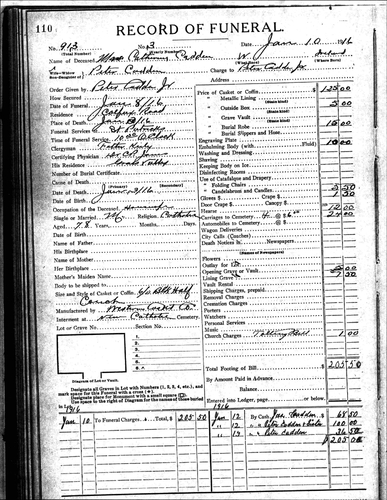 110
RECORD OF FUNERAL.
No. 913 No. 3 Date Jan 10 1916
(Total Number) (Yearly Number)
Name of Deceased Mrs Catherine Caddon W. Ireland
(What Race) (Where Born)
Wife
Peter Caddon Charge to Peter Caddon Jr.
Address
Order Given by Peter Caddon Jr
How Secured
Date of Funeral Jan 8/16
Residence
Place of Death
Funeral Services at St Patricks
Time of Funeral Service 10 O'Clock
Clergyman Father
Certifying Physician
His Residence
Number of Burial Certificate
Cause of Death
(Primary) (Secondary)
Date of Death Jan 9/16
Date of Birth
Occupation of the Deceased
Single or Married M. Religion Catholic
Aged 78 Years, Months, Days.
Date of Birth
Name of Father
His Birthplace
Name of Mother
Her Birthplace
Mother's Maiden Name
Body to be shipped to
Size and Style of Casket or Coffin 6/0 Blk Half
Couch
Manufactured by Western Casket Co.
Interment at Catholic Cemetery.
Lot or Grave No. Section No.
1.
2.
3.
4.
5.
Diagram of Lot or Vault.
Designate all Graves in Lot with Numbers (1, 2, 3, 4, etc.) and
mark space for this Funeral with a cross
Designate place for Monument with a small square
Use space to the right of Diagram for the names of those buried
Price of Casket or Coffin $ 125 00
Metallic Lining
(State Kind)
Outside Box 5 00
(State Kind)
Grave Vault
(State Kind)
Burial Robe 15 00
(State Kind)
Burial Slippers and Hose
Engraving Plate
Embalming Body (with Fluid) 10 00
Washing and Dressing
Shaving
Keeping Body on Ice
Disinfecting Rooms
Use of Catafalque and Drapery
Folding Chairs
Candelabrum and Candles
Door Crape $ Canopy $
Hearse 12 00
Carriages to Cemetery 4 @ $6.00 24 00
Automobiles to Cemetery @ $
Wagon Deliveries
City Calls (Coaches)
Death Notices in Newspapers
(Names of Newspapers)
Flowers
Outlay for Lot
Opening Grave or Vault
Lining Grave
Vault Rental
Shipping Charges, prepaid
Removal Charges
Cremation Charges
Porters
Watchers
Personal Services
Music
Church Charges Tolling Bell 1.00
Total Footing of Bill $ 205 50
By Amount Paid in Advance $
Balance $
Entered into Ledger, page or below.
1916 1916
Jan 10 To Funeral Charges Total, $ 205 50 Jan 12 By Cash Jas Caddon 68 50
12 Peter Caddon 100 00
13 Peter Caddon 36 50
$205 00